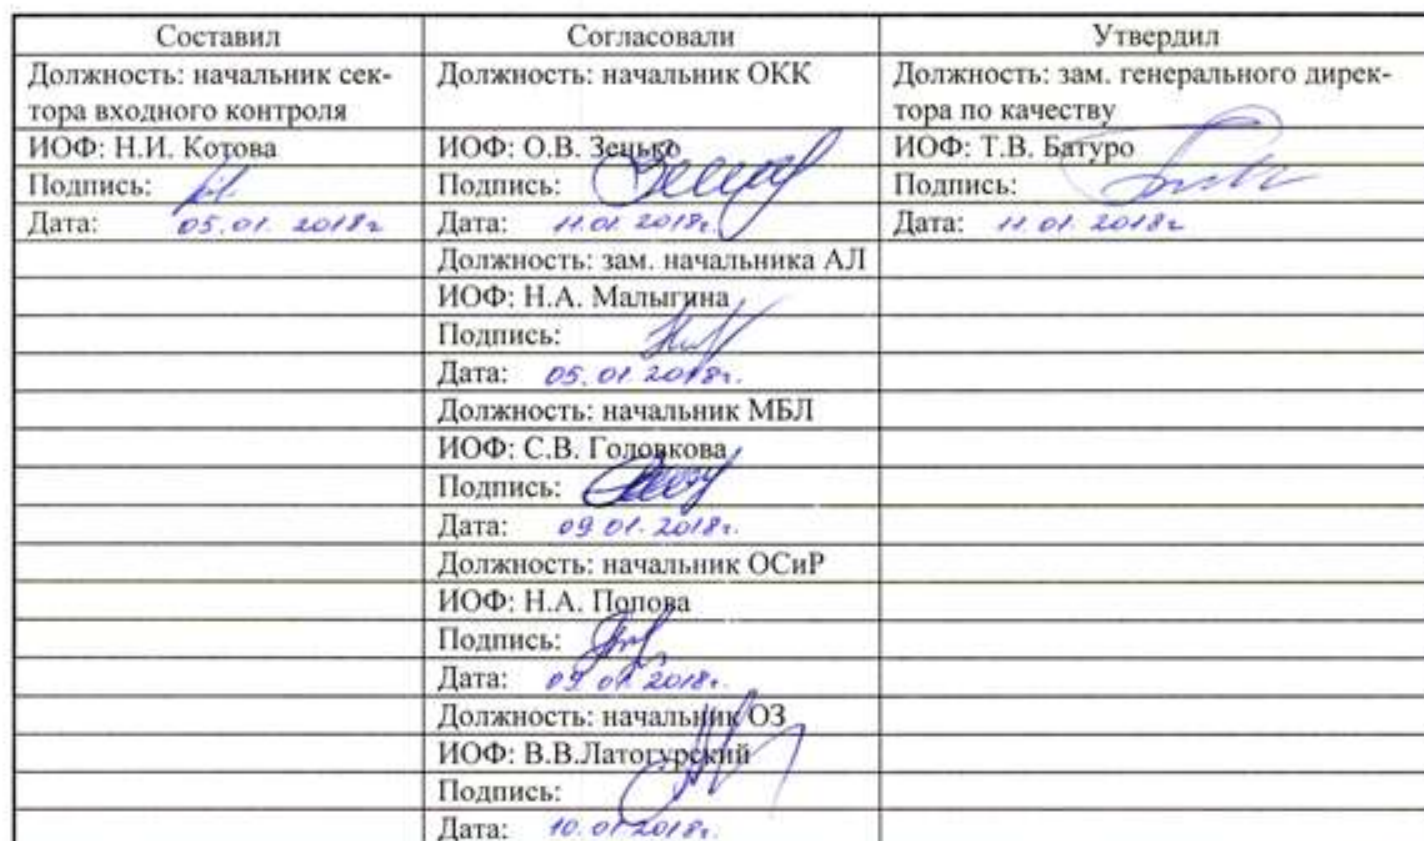 Составил Согласовали Утвердил
Должность: начальник сек- Должность: начальник ОКК Должность: зам. генерального дирек-
тора входного контроля тора по качеству
ИОФ: Н.И. Котова ИОФ: О.В. Зенько ИОФ: Т.В. Батуро
Подпись: Подпись: Подпись:
Дата: 05.01.2018г Дата: 11.01.2018г. Дата: 11.01.2018г
Должность: зам. начальника АЛ
ИОФ: Н.А. Малыгина
Подпись:
Дата: 05.01.2018г.
Должность: начальник МБЛ
ИОФ: С.В. Головкова
Подпись:
Дата: 09.01.2018г.
Должность: начальник ОСиР
ИОФ: Н.А. Попова
Подпись:
Дата: 09.01.2018г.
Должность: начальник ОЗ
ИОФ: В.В.Латогурский
Подпись:
Дата: 10.01.2018г.